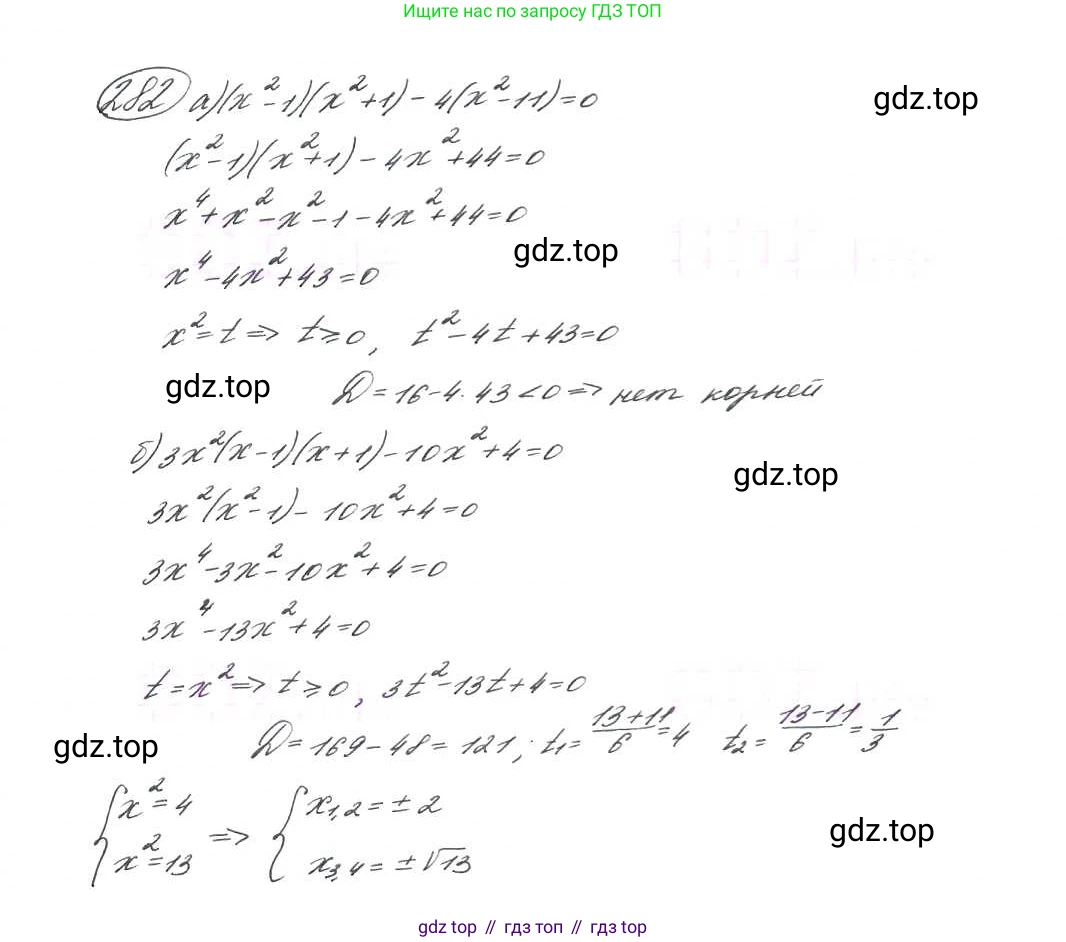 Ищите нас по запросу ГДЗ ТОП
282 а) (x²-1)(x²+1)-4(x²-11)=0
gdz.top
(x²-1)(x²+1)-4x²+44=0
x⁴+x²-x²-1-4x²+44=0
gdz.top
x⁴-4x²+43=0
x²=t => t≥0, t²-4t+43=0
gdz.top
D=16-4·43<0 => нет корней
б) 3x²(x-1)(x+1)-10x²+4=0
gdz.top
3x²(x²-1)-10x²+4=0
3x⁴-3x²-10x²+4=0
3x⁴-13x²+4=0
t=x² => t≥0, 3t²-13t+4=0
gdz.top
D=169-48=121; t₁=(13+11)/6=4 t₂=(13-11)/6=1/3
{x²=4 => {x₁,₂=±2
gdz.top
x²=13 x₃,₄=±√13
gdz top // гдз топ // gdz top